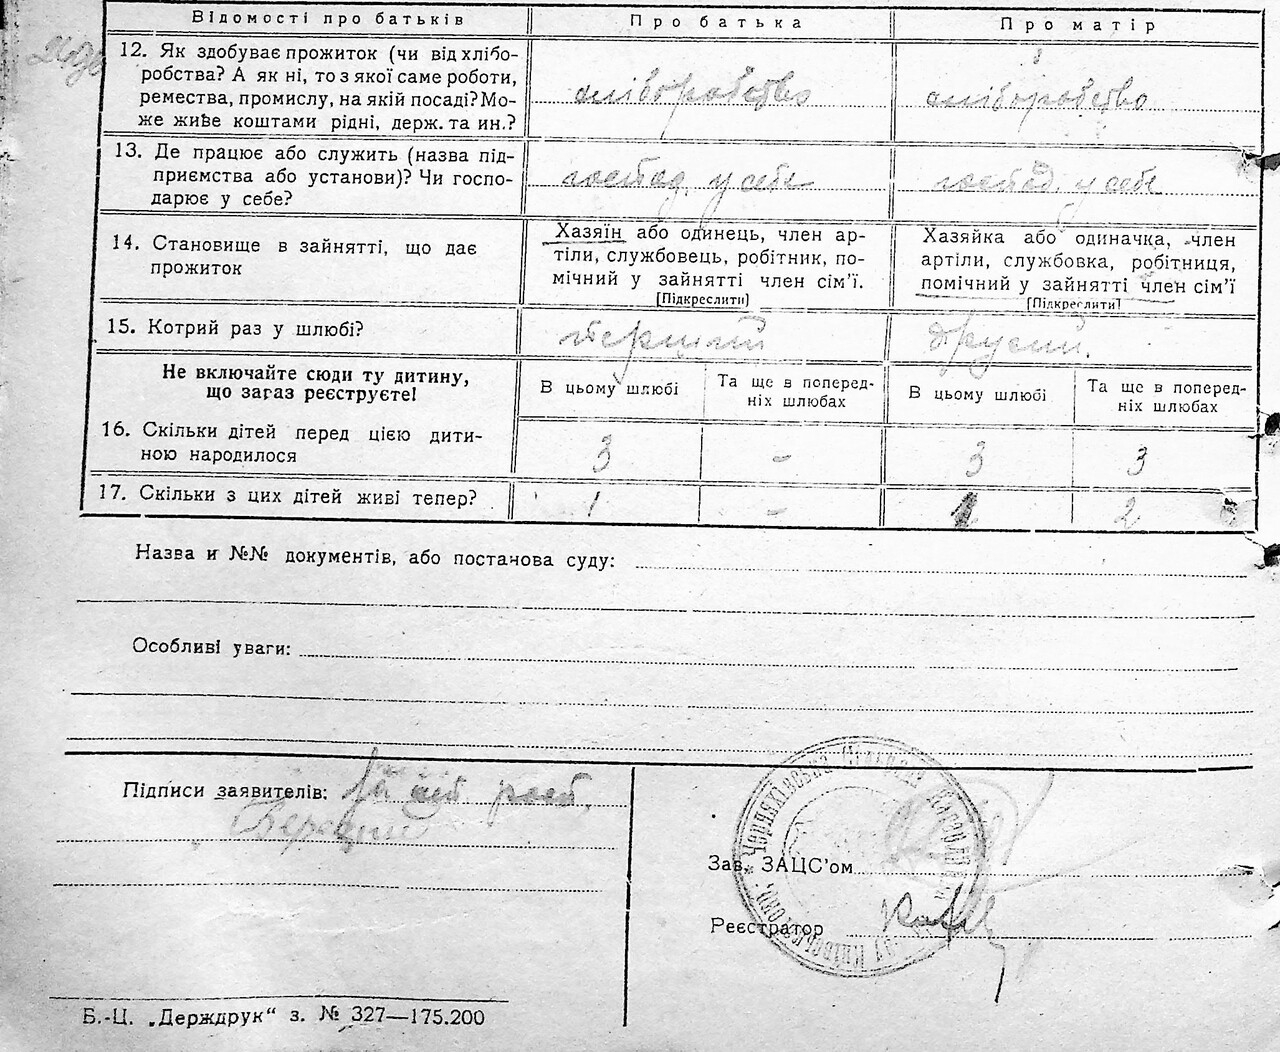 Відомості про батьків
Про батька
Про матір
12. Як здобуває прожиток (чи від хлібо-
робства? А як ні, то з якої саме роботи,
ремества, промислу, на якій посаді? Мо-
же живе коштами рідні, держ. та ин.?
хліборобство
хліборобство
13. Де працює або служить (назва під-
приємства або установи)? Чи госпо-
дарює у себе?
господ. у себе
господ. у себе
14. Становище в зайнятті, що дає
прожиток
Хазяїн або одинець, член ар-
тіли, службовець, робітник, по-
мічний у зайнятті член сім’ї.
[Підкреслити]
Хазяйка або одиначка, член
артіли, службовка, робітниця,
помічний у зайнятті член сім’ї
[Підкреслити]
15. Котрий раз у шлюбі?
перший
другий.
Не включайте сюди ту дитину,
що зараз реєструєте!
В цьому шлюбі
Та ще в поперед-
ніх шлюбах
В цьому шлюбі
Та ще в поперед-
ніх шлюбах
16. Скільки дітей перед цією дити-
ною народилося
3
-
3
3
17. Скільки з цих дітей живі тепер?
1
-
1
2
Назва и №№ документів, або постанова суду:
Особливі уваги:
Підписи заявителів:
Зав. ЗАЦС’ом
Реєстратор
Б.-Ц. „Держдрук“ з. № 327—175.200